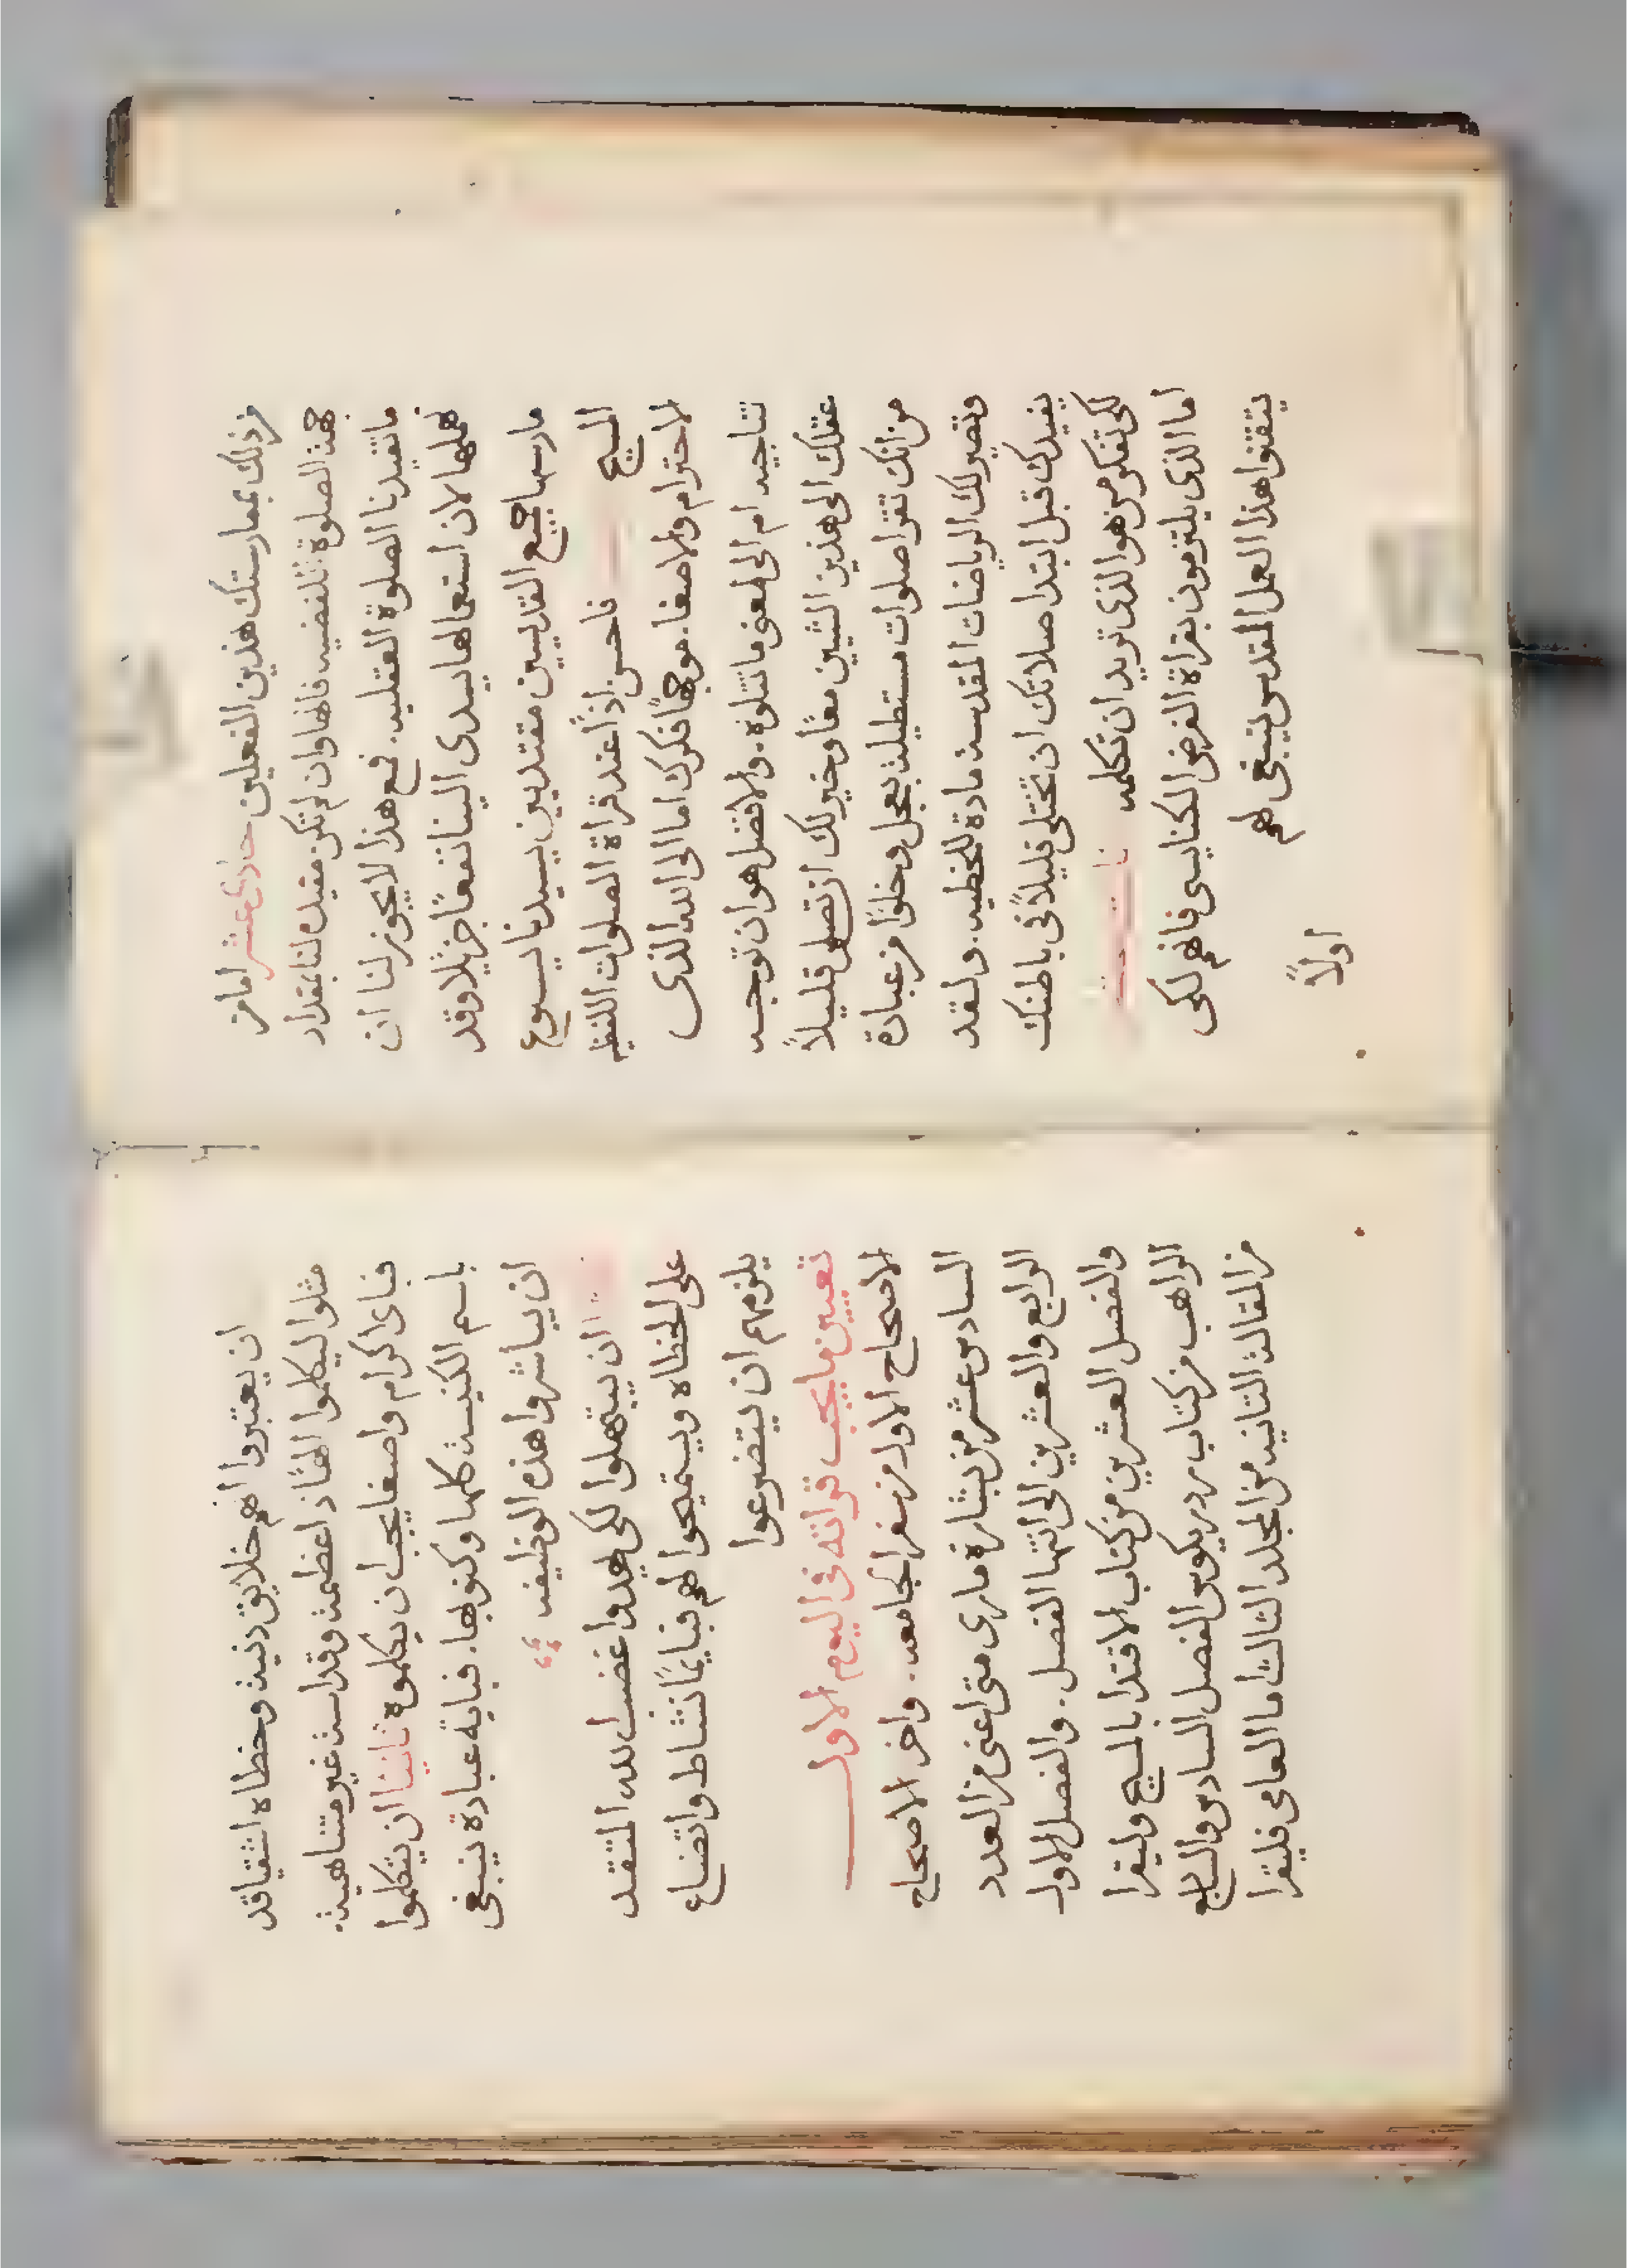 من ذلك بممارستك هذين الفعلين حادي عشر اما من
جهة الصلوة اللفظيه فانها وان لم تكن مفيده لنا بمقدار
ما تفيدنا الصلوة العقليه. فمع هذا لا يجوز لنا ان
نهملها لان استعمالها يسدى الينا نفعًا جزيلا وقد
مارسها جميع القديسين مقتديين بسيدنا يسوع
المسيح فاحسن اذًا عند قراة الصلوات اللفظيه
الاحترام والاصغا. موجهًا فكرك اما الى الله الذي
تناجيه ام الى المعنى ما تتلوه. والافضل هو ان توجه
عقلك الى هذين الشيين معًا وخير لك ان تصلى قليلاً
من انك تقرا صلوات مستطيله بعجل وخلوًا من عبادة
وتصير لك الرياضات المقدسه مادة للخطيه. ولقد
يفيدك قبل ابتدا صلاتك ان تختلي قليلاً في باطنك
لكي تفكر من هو الذي تريد ان تكلمه
اما الذي يلتزمون بقراة الفرض الكنايسي فانهم لكي
يتقنوا هذا العمل المقدس ينبغى لهم
اولاً
ان يعتبروا انهم خلايق دنيه وخطاه اشقيا قد
مثلوا ليكلموا الهًا ذا عظمه وقداسه غير متناهيه.
فباى اكرام واصغا يجب ان يكلموه ثانيًا ان يتكلموا
باسم الكنيسه كلها وكنوبها. فباية عبادة ينبغى
ان يباشروا هذه الوظيفه
ان يبتهلوا لكي يهدوا غضب الله المتقد
على الخطاه ويستميحوا لهم فبايما نشاط واتضاع
يلزمهم ان يتضرعوا
تعيين ما يجب قراته في اليوم الاول
الاصحاح الاول من سفر الجامعه. واخر الاصحاح
السادس عشر من بشارة مارى متى اعنى من العدد
الرابع والعشرين الى انتها الفصل. والفصل الاول
والفصل العشرين من كتاب الاقتدا بالمسيح وليقرا
الراهب من كتاب رودريكوس الفصل السادس والسابع
من المقالة الثانيه من المجلد الثالث اما العامى فليقرا